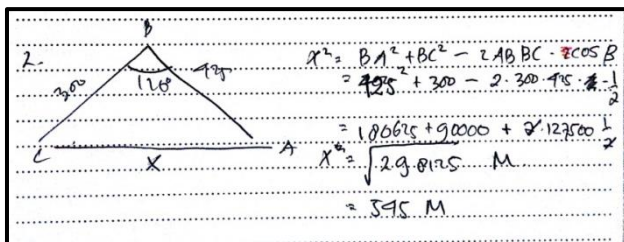 2.
B
300
120°
425
C
X
A
X² = BA² + BC² - 2AB BC . cos B
= 425² + 300 - 2.300.425. - 1/2
= 180625 + 90000 + 2.127500 1/2
X = √29.8125 M
= 545 M